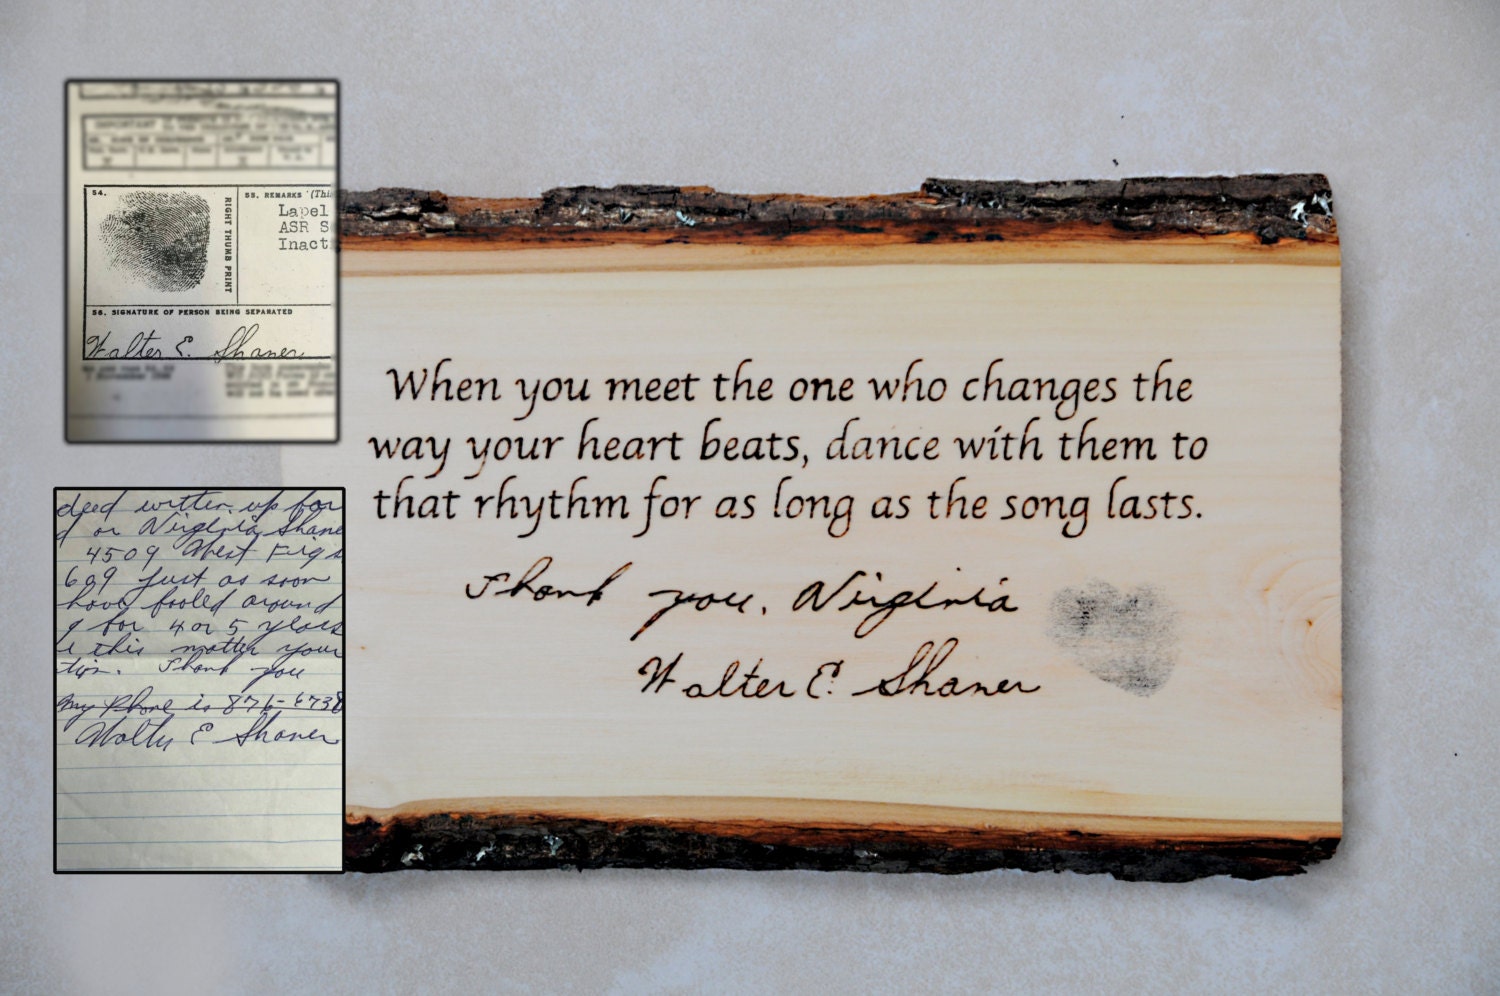 54.
RIGHT THUMB PRINT
55. REMARKS (Thi
Lapel
ASR S
Inact
56. SIGNATURE OF PERSON BEING SEPARATED
Walter E. Shaner
deed written up for
or Virginia Shane
4509 West
609 just as soon
have fooled around
for 4 or 5 years
this matter your
Thank you
my Phone is 876-6738
Walter E Shaner
When you meet the one who changes the
way your heart beats, dance with them to
that rhythm for as long as the song lasts.
Thank you, Virginia
Walter E. Shaner